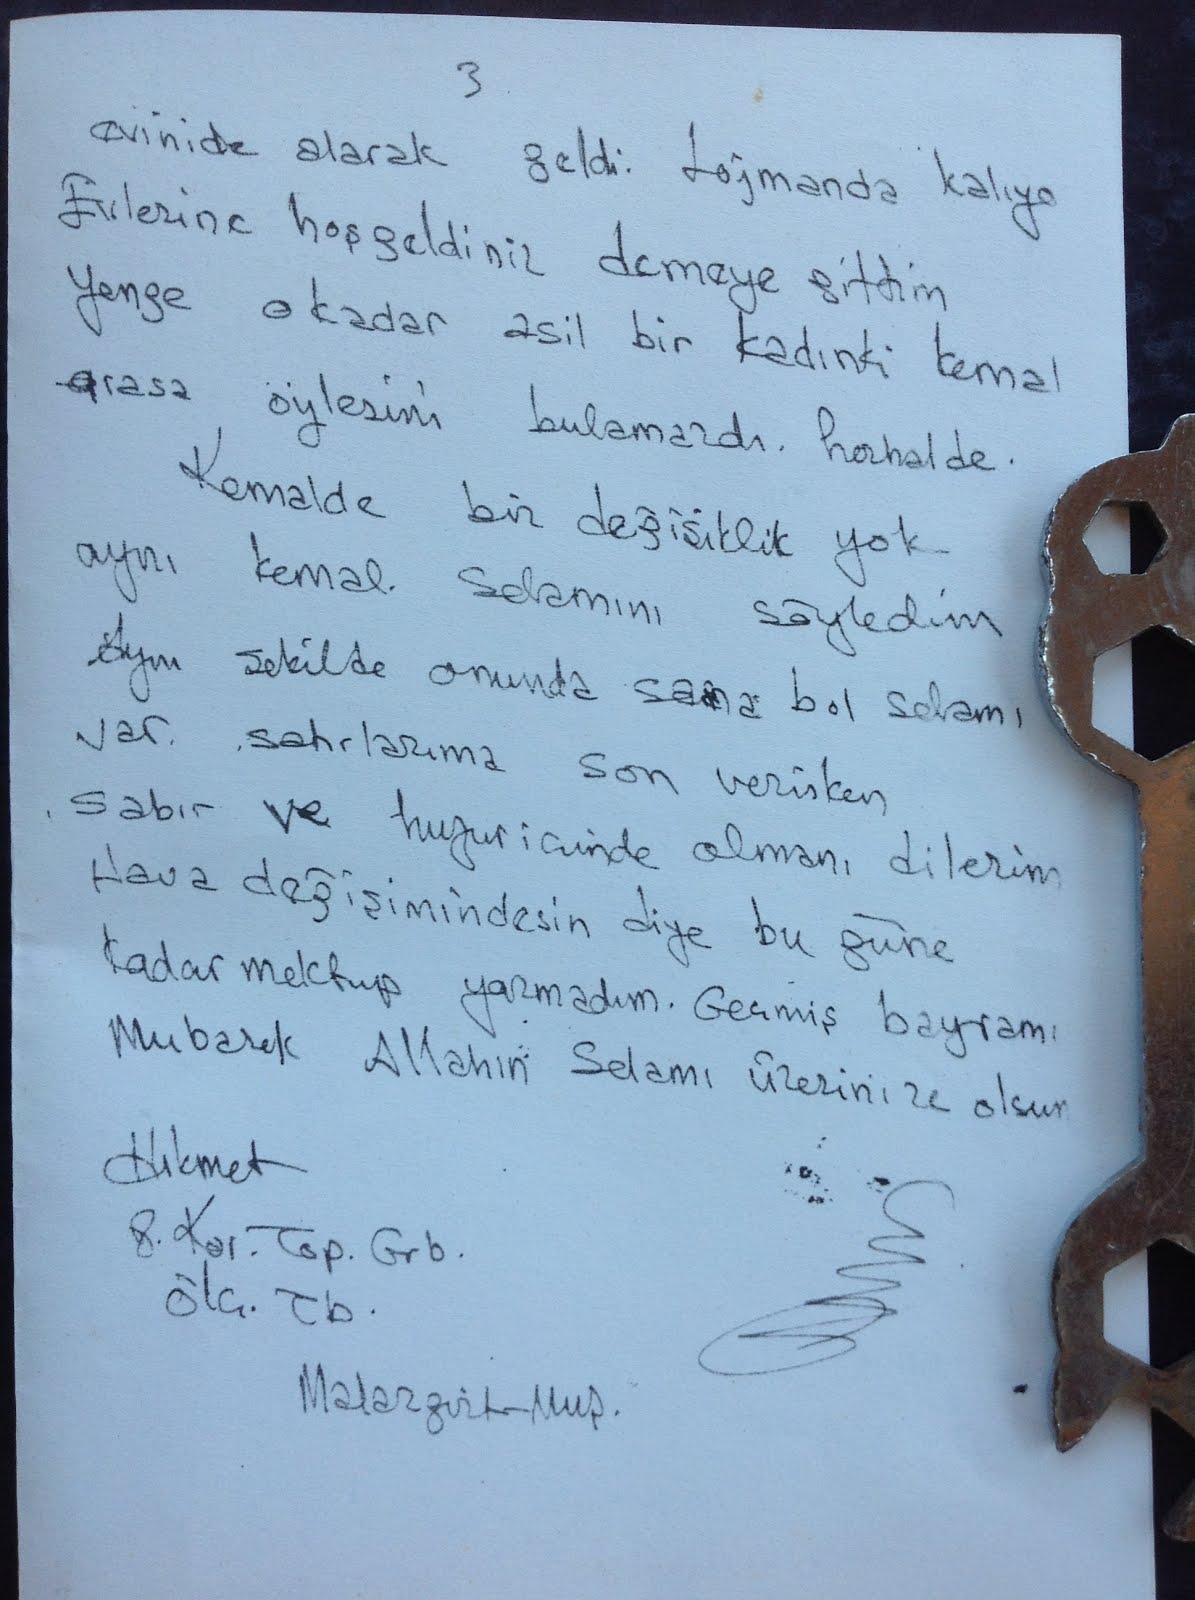 3
evinide alarak geldi. Lojmanda kalıyo
Evlerine hoşgeldiniz demeye gittim
Yenge o kadar asil bir kadınki kemal
arasa öylesini bulamazdı. herhalde.
Kemalde bir değişiklik yok
aynı kemal. Selamını söyledim
Aynı şekilde onunda sana bol selamı
var. satırlarıma son verirken
sabır ve huzur içinde olmanı dilerim
Hava değişimindesin diye bu güne
kadar mektup yazmadım. Geçmiş bayramı
Mubarek Allahın Selamı üzerinize olsun
Hikmet
8. Kor. Top. Grb.
Ölç. Tb.
Malazgirt-Muş.